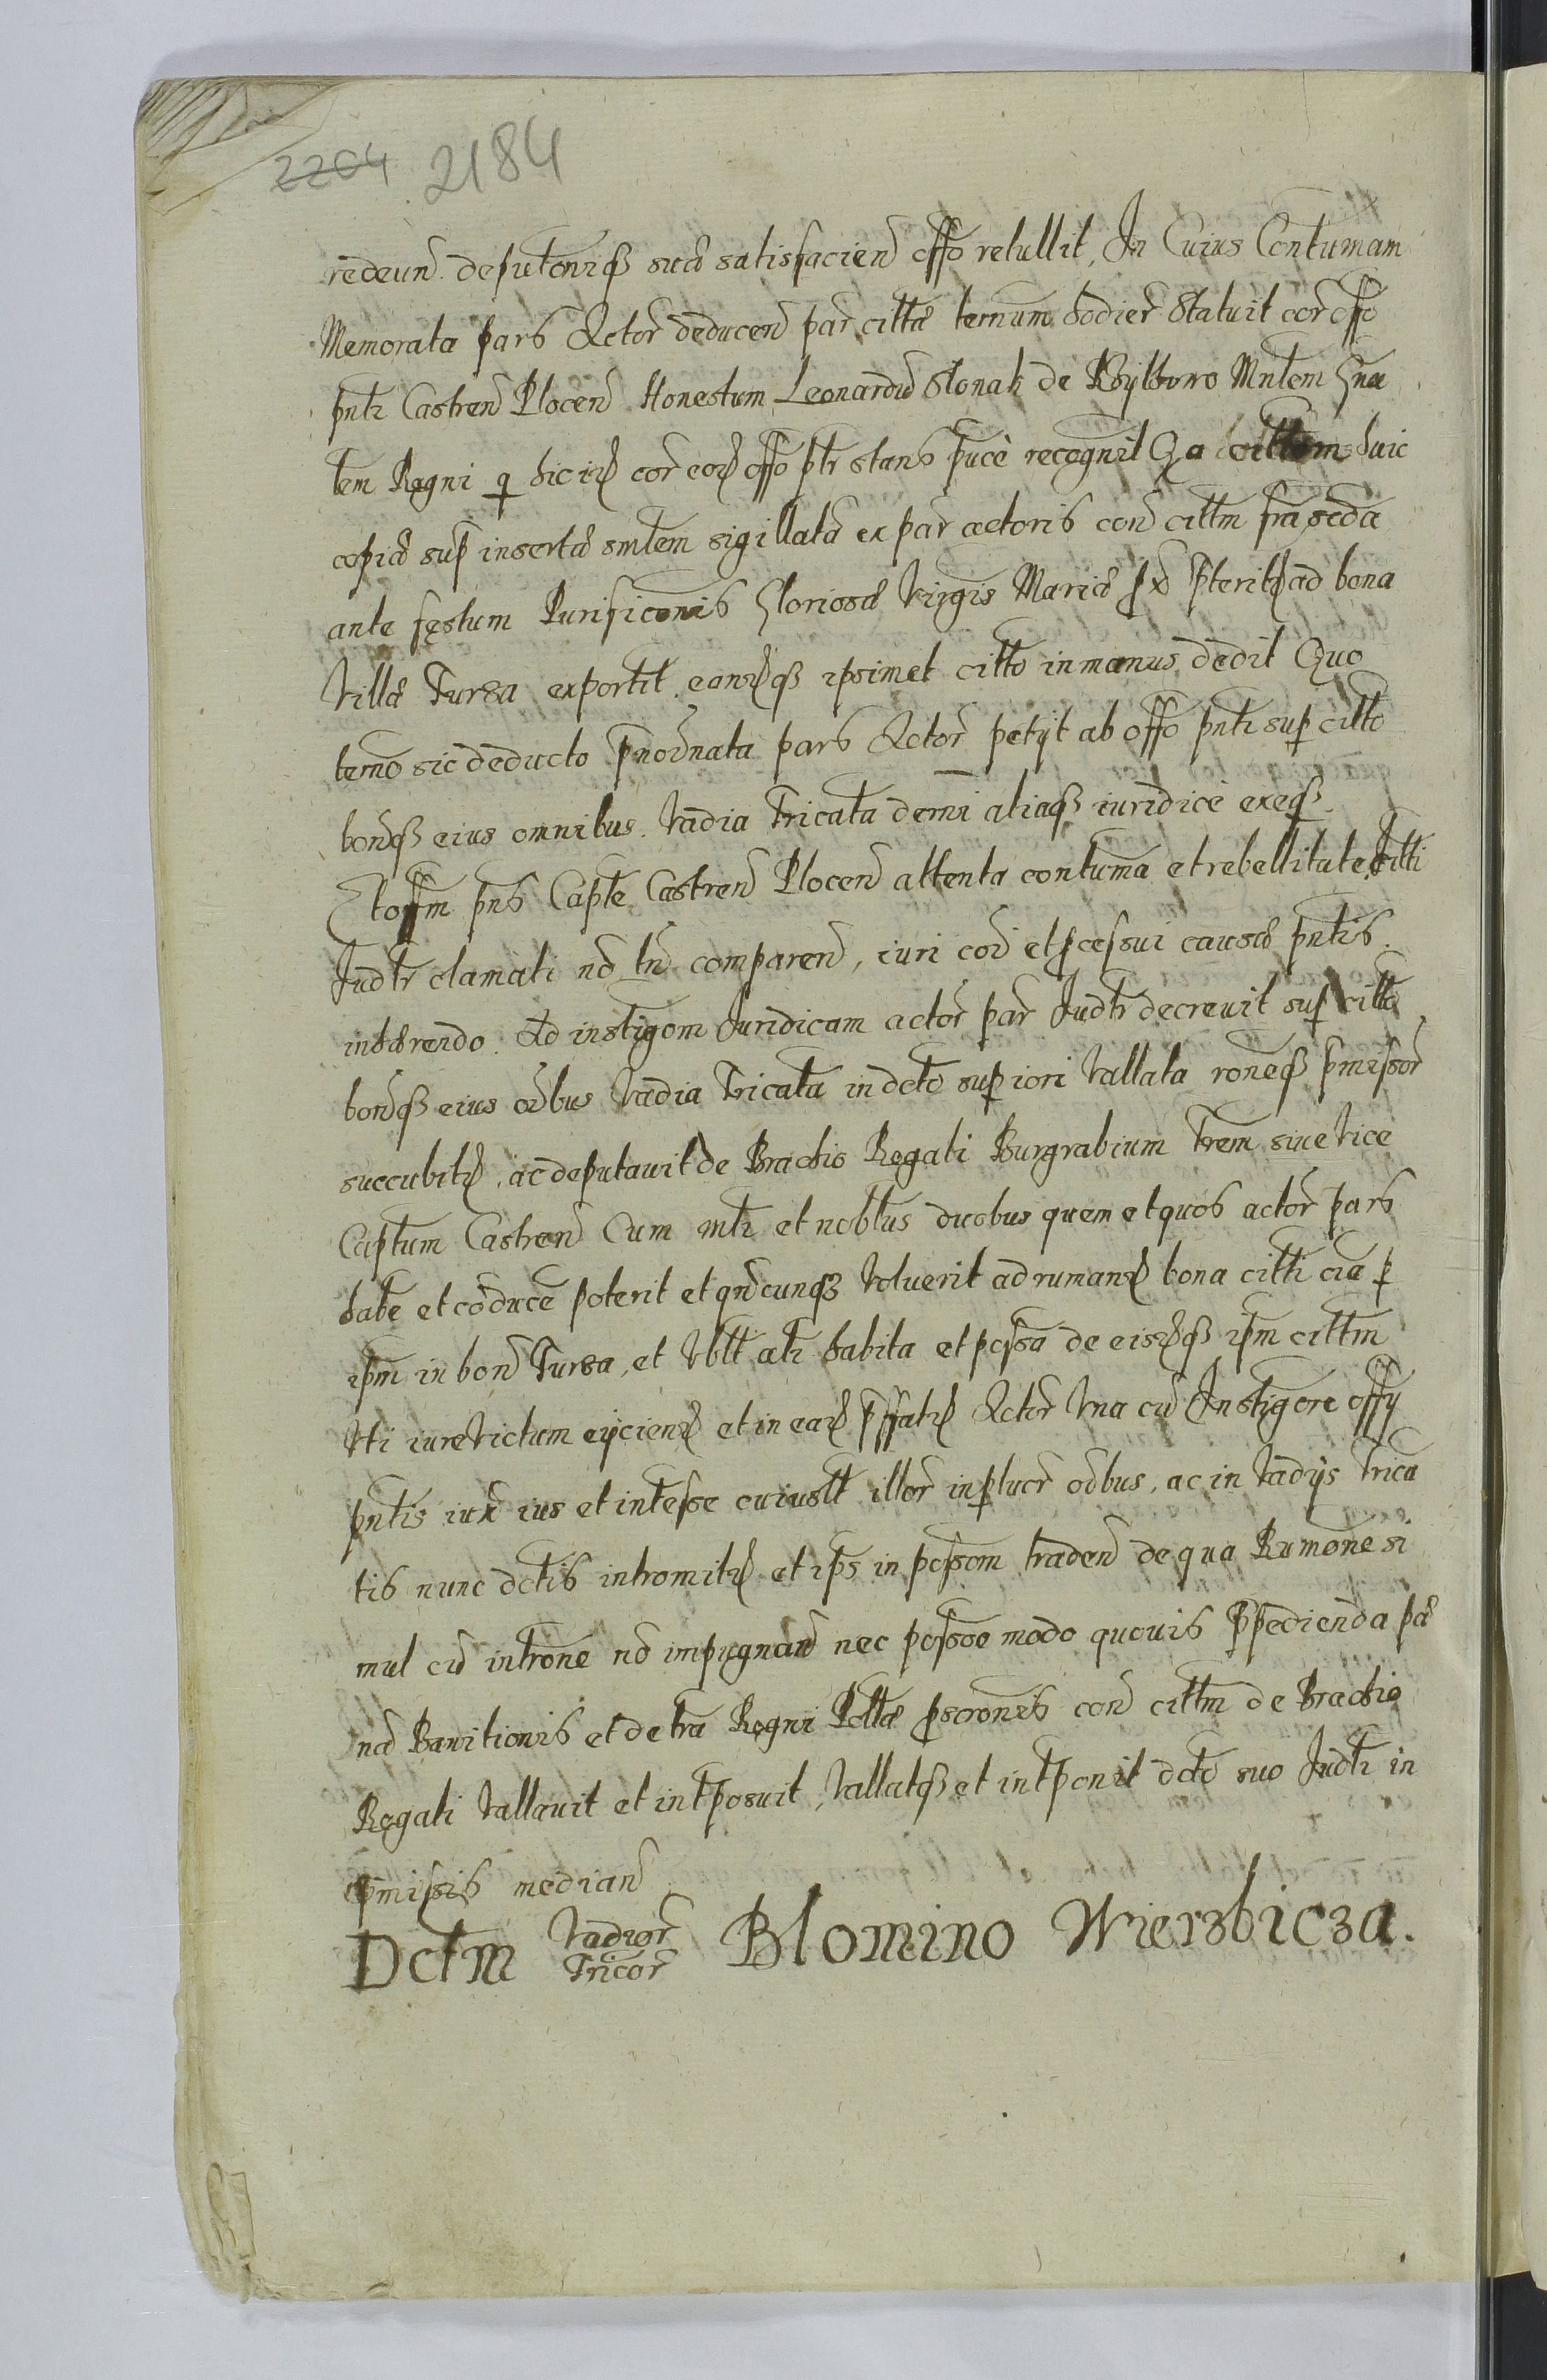 2204 2184
redeun deputoniq sua satisfacien offo retullit, In Cuius Contumam
Memorata pars Actor deducen par citta ternum hodier Statuit cor offo
pnti Castren Plocen Honestum Leonardu Slonak de Mntem Gna
tem Regni q hic cor offo ptr stans puce recognit Qa cittem huic
copia sup inserta smtem sigillata ex par actoris con cittm fra scda
ante festum Purificonis Gloriosae Virgis Mariae pterit ad bona
Villa Tursa exportit eansq ipsimet citto in manus dedit Quo
terno sic deducto pnoinata pars Actor petyt ab offo pnti sup citto
bonisq eius omnibus. Vadia Tricata derni aliaq iuridice exeq
Et offm pns Capte Castren Plocen attenta contuma et rebellitate Citti
Judtr clamati no tn comparen, iuri coi et pcessui causae pntis
inhaerendo. Ad instigom Juridicam actor par Judtr decrevit sup citto
bonisq eius oibus Vadia Tricata in dcto superiori Vallata roneq pmissor
succubit, ac deputauit de Brachio Regali Burgrabium Trem siue Vice
Captum Castren Cum mti et nobtus duobus quem et quos actor pars
habe et conduce poterit et qncunq Voluerit ad ruman bona citti oia p
ipm in bon Tursa, et Vbtt ati habita et possa de eisq ipm cittm
Vti iure Victum eyicien et in ea pffat Actor Vna cu Instigore offy
pntis iux ius et intesse cuiustt illor in plucr oibus, ac in Vadys Trica
tis nunc dctis intromit et ips in possom traden de qua Rumone si
mul cu introne no impugnan nec possoe modo quouis ppedienda pae
na Banitionis et de tra Regni Pollae pscronis con cittm de Brachio
Regali Vallauit et intposuit, Vallatq et intponit dcto suo Judti in
pmissis median
Dctm Vadior Tricor Blomino Wierzbicza.